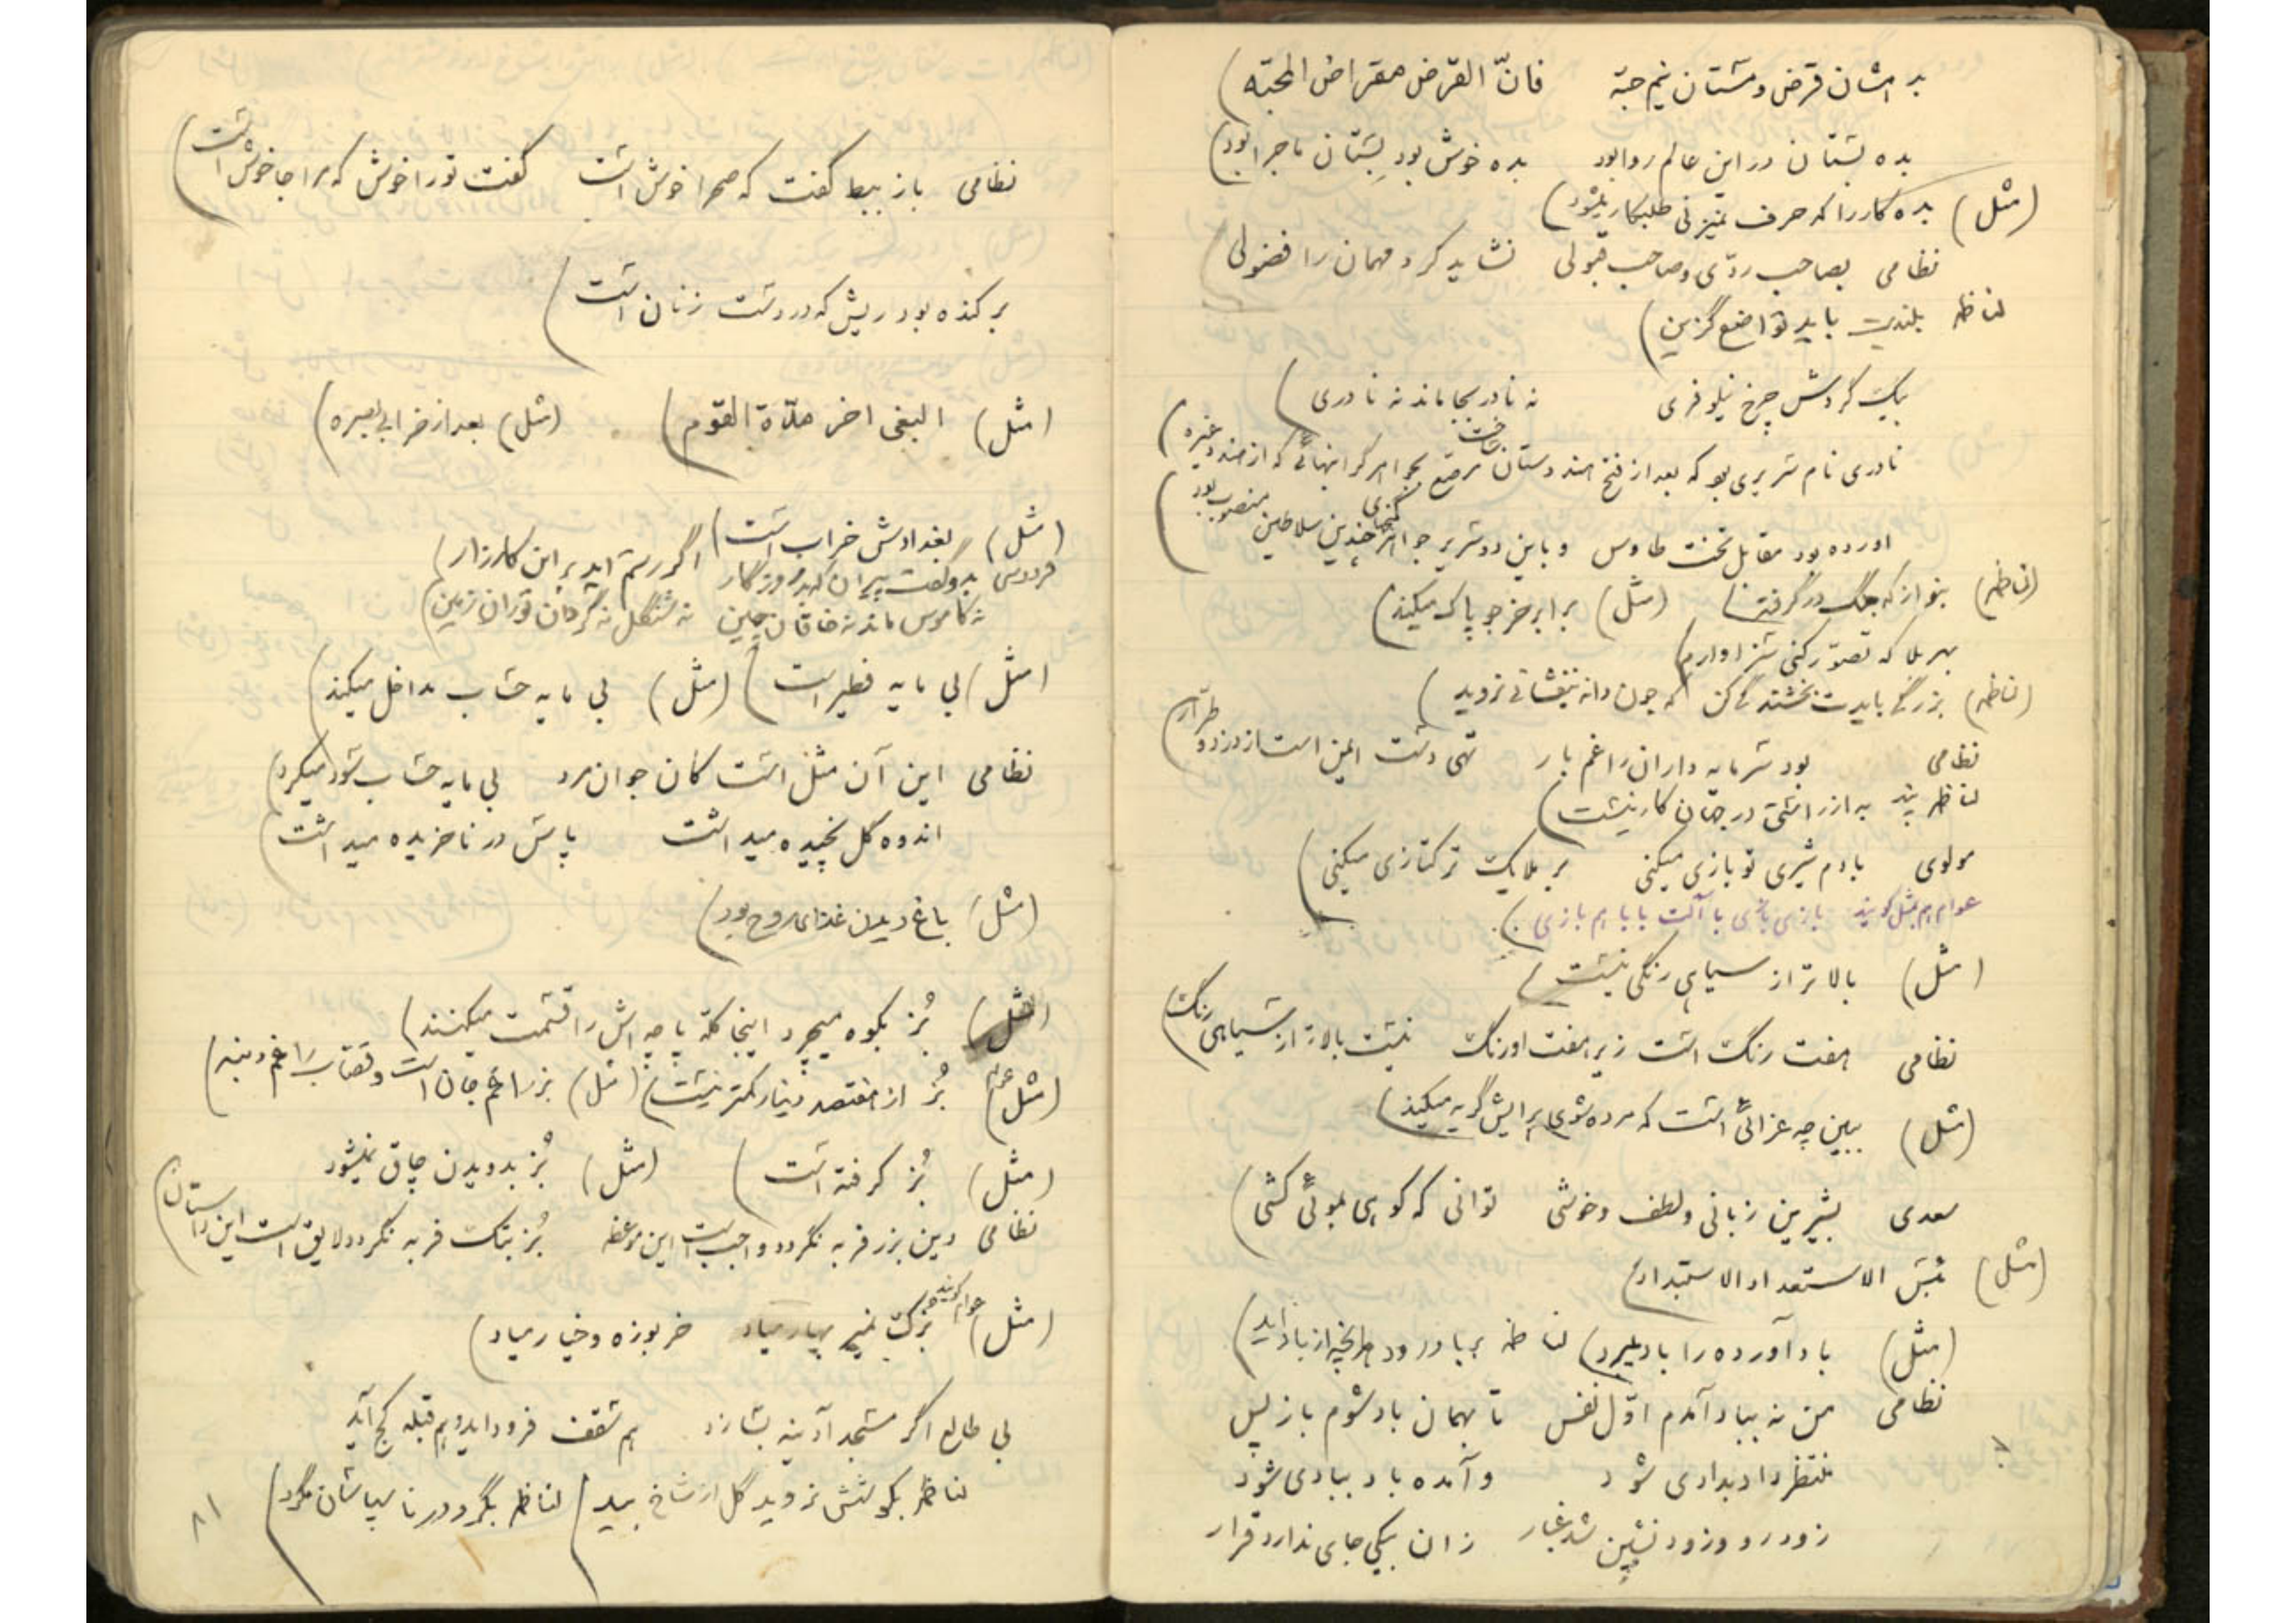 بد امشان قرض و مستان نیم حبّه فانّ القرض مقراض المحبّه)
بده بستان در این عالم روا بود بده خوش بود بستان ماجرا بود)
(مثل) بده کار را که حرف نمیزنی طلبکار میشود)
نظامی بصاحب ردّی و صاحب قبولی نشاید کرد مهمان را فضولی)
لناظمه بلندیت باید تواضع گزین)
بیک گردش چرخ نیلوفری نه نادر بجا ماند نه نادری)
نادری نام سریری بود که بعد از فتح هندوستان ساخت مرصّع بجواهر گرانبهائی که از هند و غیره)
اورده بود مقابل تخت طاوس و باین دو سریر جواهر گنجهای چندین سلاطین منصوب بود)
(لناظمه) بنواز که چنگ در گرفته) (مثل) برابر خر جو پاک میکند)
بهر بلا که تصوّر کنی سزاوارم)
(لناظمه) بزرگی بایدت بخشندگی کن که چون دانه نیفشانی نروید)
نظامی بود سرمایه داران را غم بار تهی دست ایمن است از دزد و طرّار)
لناظمه به از راستی در جهان کار نیست)
مولوی با دم شیری تو بازی میکنی بر ملایک ترکتازی میکنی)
عوام هم بمثل گویند بازی بازی با آلت بابا هم بازی)
(مثل) بالاتر از سیاهی رنگی نیست)
نظامی هفت رنگ است زیر هفت اورنگ نیست بالاتر از سیاهی رنگ)
(مثل) ببین چه عزائی است که مرده شوی برایش گریه میکند)
سعدی بشیرین زبانی و لطف و خوشی توانی که کوهی بموئی کشی)
(مثل) بئس الاستعداد الاستبداد)
(مثل) باد آورده را باد میبرد) لناظمه بر باد رود هرانچه از باد اید)
نظامی من نه بباد آمدم اوّل نفس تا بهمان باد شوم باز پس
منتظر داد بدادی شود و آمده باد ببادی شود
زود رو و زود نشین شد غبار زان بیکی جای ندارد قرار
نظامی باز ببط گفت که صحرا خوش است گفت تو را خوش که مرا جا خوش است)
بر کنده بود ریش که در دست زنان است)
(مثل) البغی اخر مدّة القوم) (مثل) بعد از خرابی بصره)
(مثل) بغدادش خراب است)
فردوسی بدو گفت پیران کهز روزگار اگر رستم اید بر این کارزار)
نه کاموس ماند نه خاقان چین نه شنگل نه گردان توران زمین)
(مثل) بی مایه فطیر است) (مثل) بی مایه حساب مداخل میکند)
نظامی این آن مثل است کان جوان مرد بی مایه حساب سود میکرد)
اندوه گل نچیده میداشت پاس در ناخریده میداشت)
(مثل) باغ دیدن غذای روح بود)
(مثل) بُز بکوه میچرد اینجا کلّه پاچه اش را قسمت میکنند)
(مثل) بُز از هفتصد دینار کمتر نیست) (مثل) بز را غم جان است و قصّاب را غم دنبه)
(مثل) بُز گرفته است) (مثل) بُز بدویدن چاق نمیشود
نظامی دین بزر فربه نگردد واجب است این موعظه بُز بتک فربه نگردد لایق است این داستان)
(مثل) عوام گویند بزک نمیر بهار میاد خربوزه و خیار میاد)
بی طالع اگر مسجد آدینه بسازد هم سقف فرود اید و هم قبله کج آید
لناظمه بکوشش نروید گل از شاخ بید) لناظمه بگرد در ناسپاسان مگرد)
۸۱